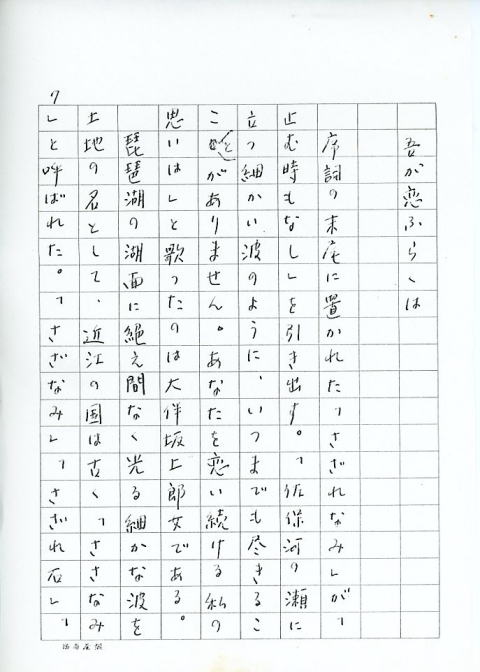 吾が恋ふらくは
序詞の末尾に置かれた「さざれなみ」が「
止む時もなし」を引き出す。「佐保河の瀬に
立つ細かい波のように、いつまでも尽きるこ
ことがありません。あなたを恋い続ける私の
思いは」と歌ったのは大伴坂上郎女である。
琵琶湖の湖面に絶え間なく光る細かな波を
土地の名として、近江の国は古く「ささなみ
」と呼ばれた。「さざなみ」「さざれ石」「
7